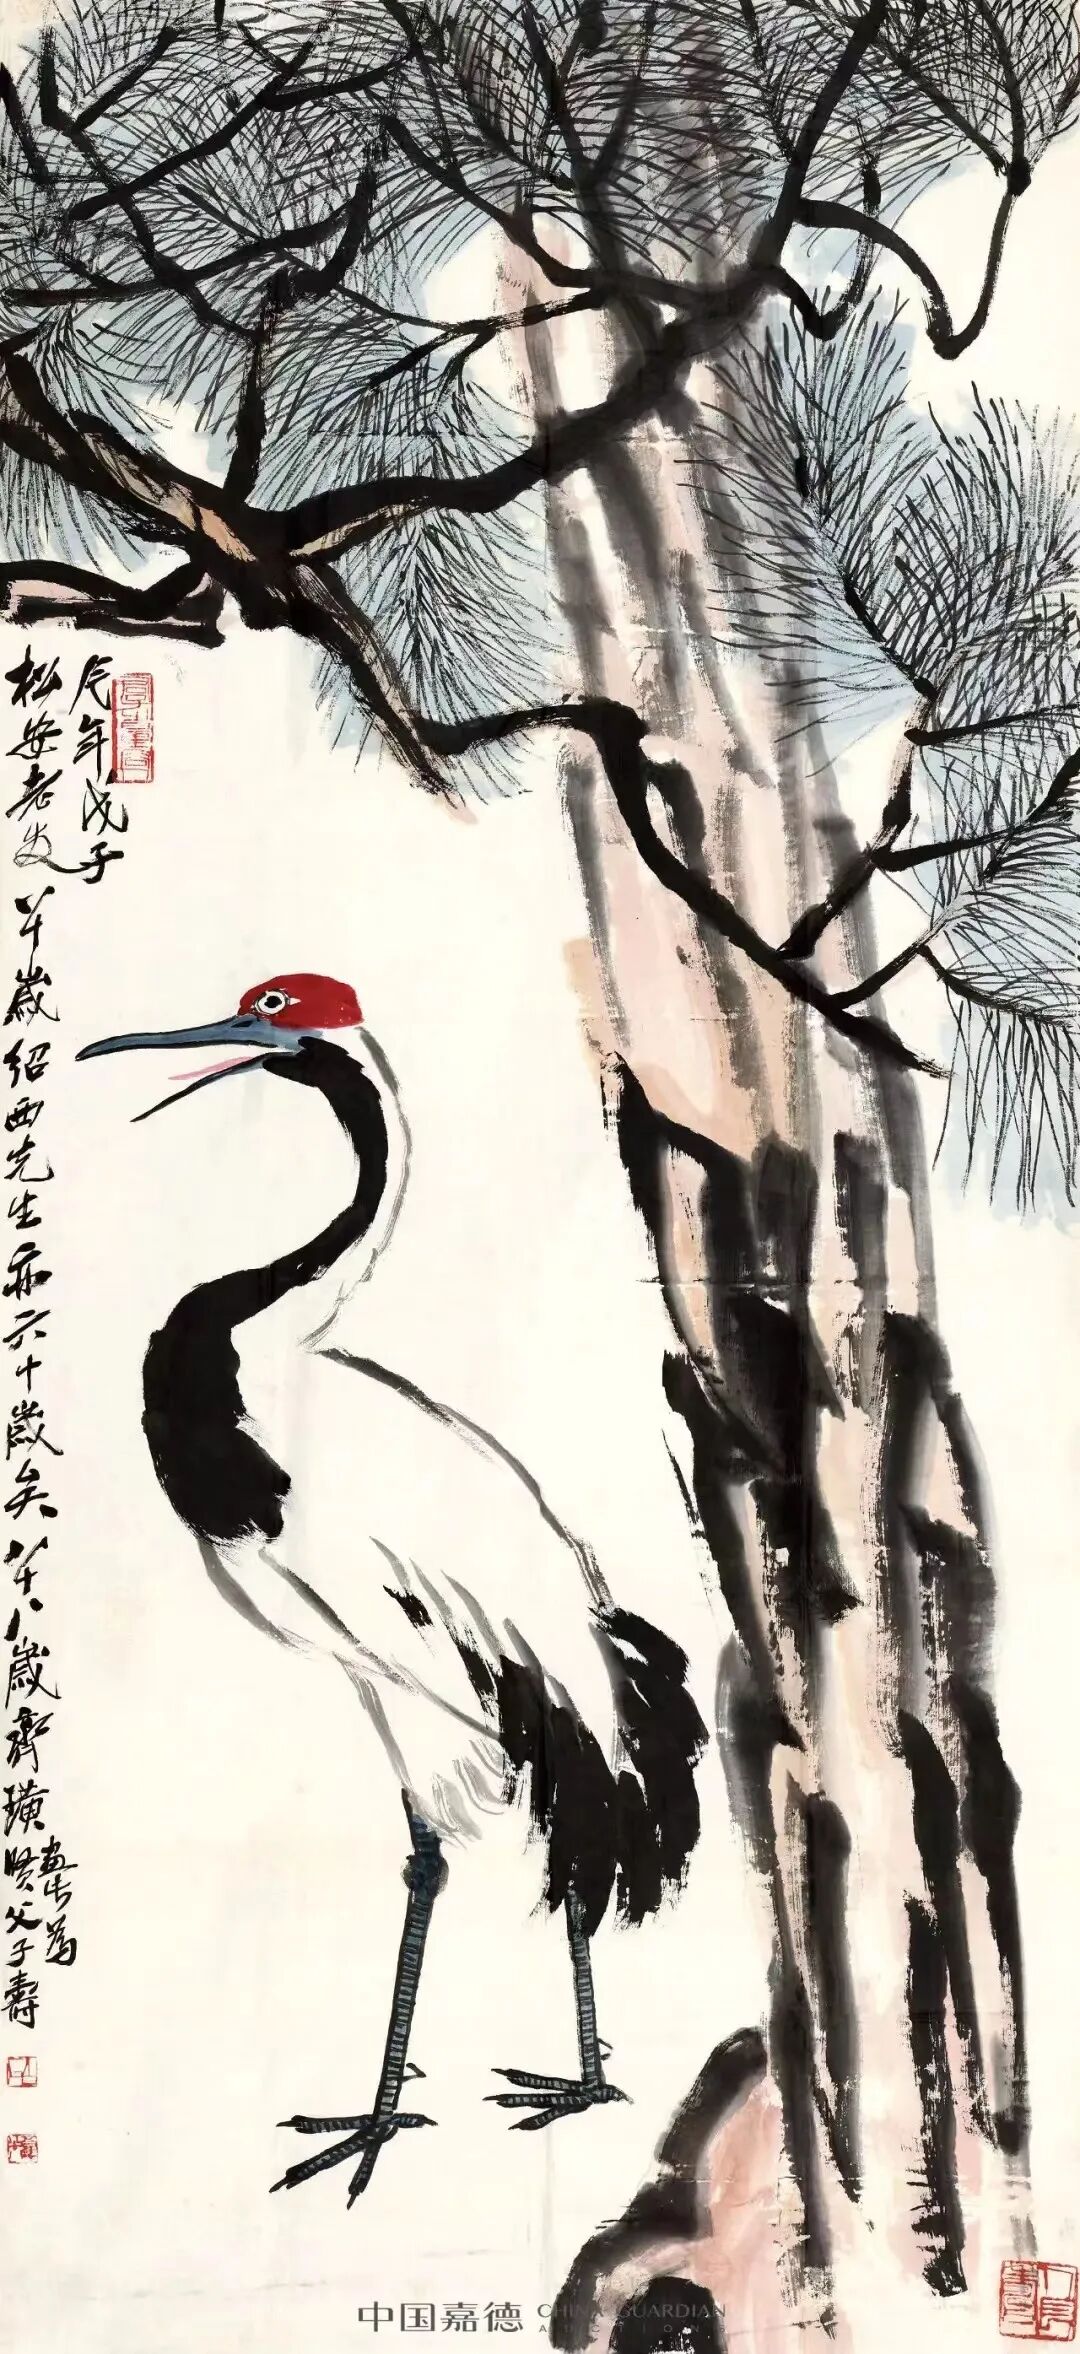 年戊子
松安老友八十歲紹西先生亦六十歲矣八十八歲齊璜
畫此為
賢父子壽
中国嘉德 CHINA GUARDIAN
AUCTIONS